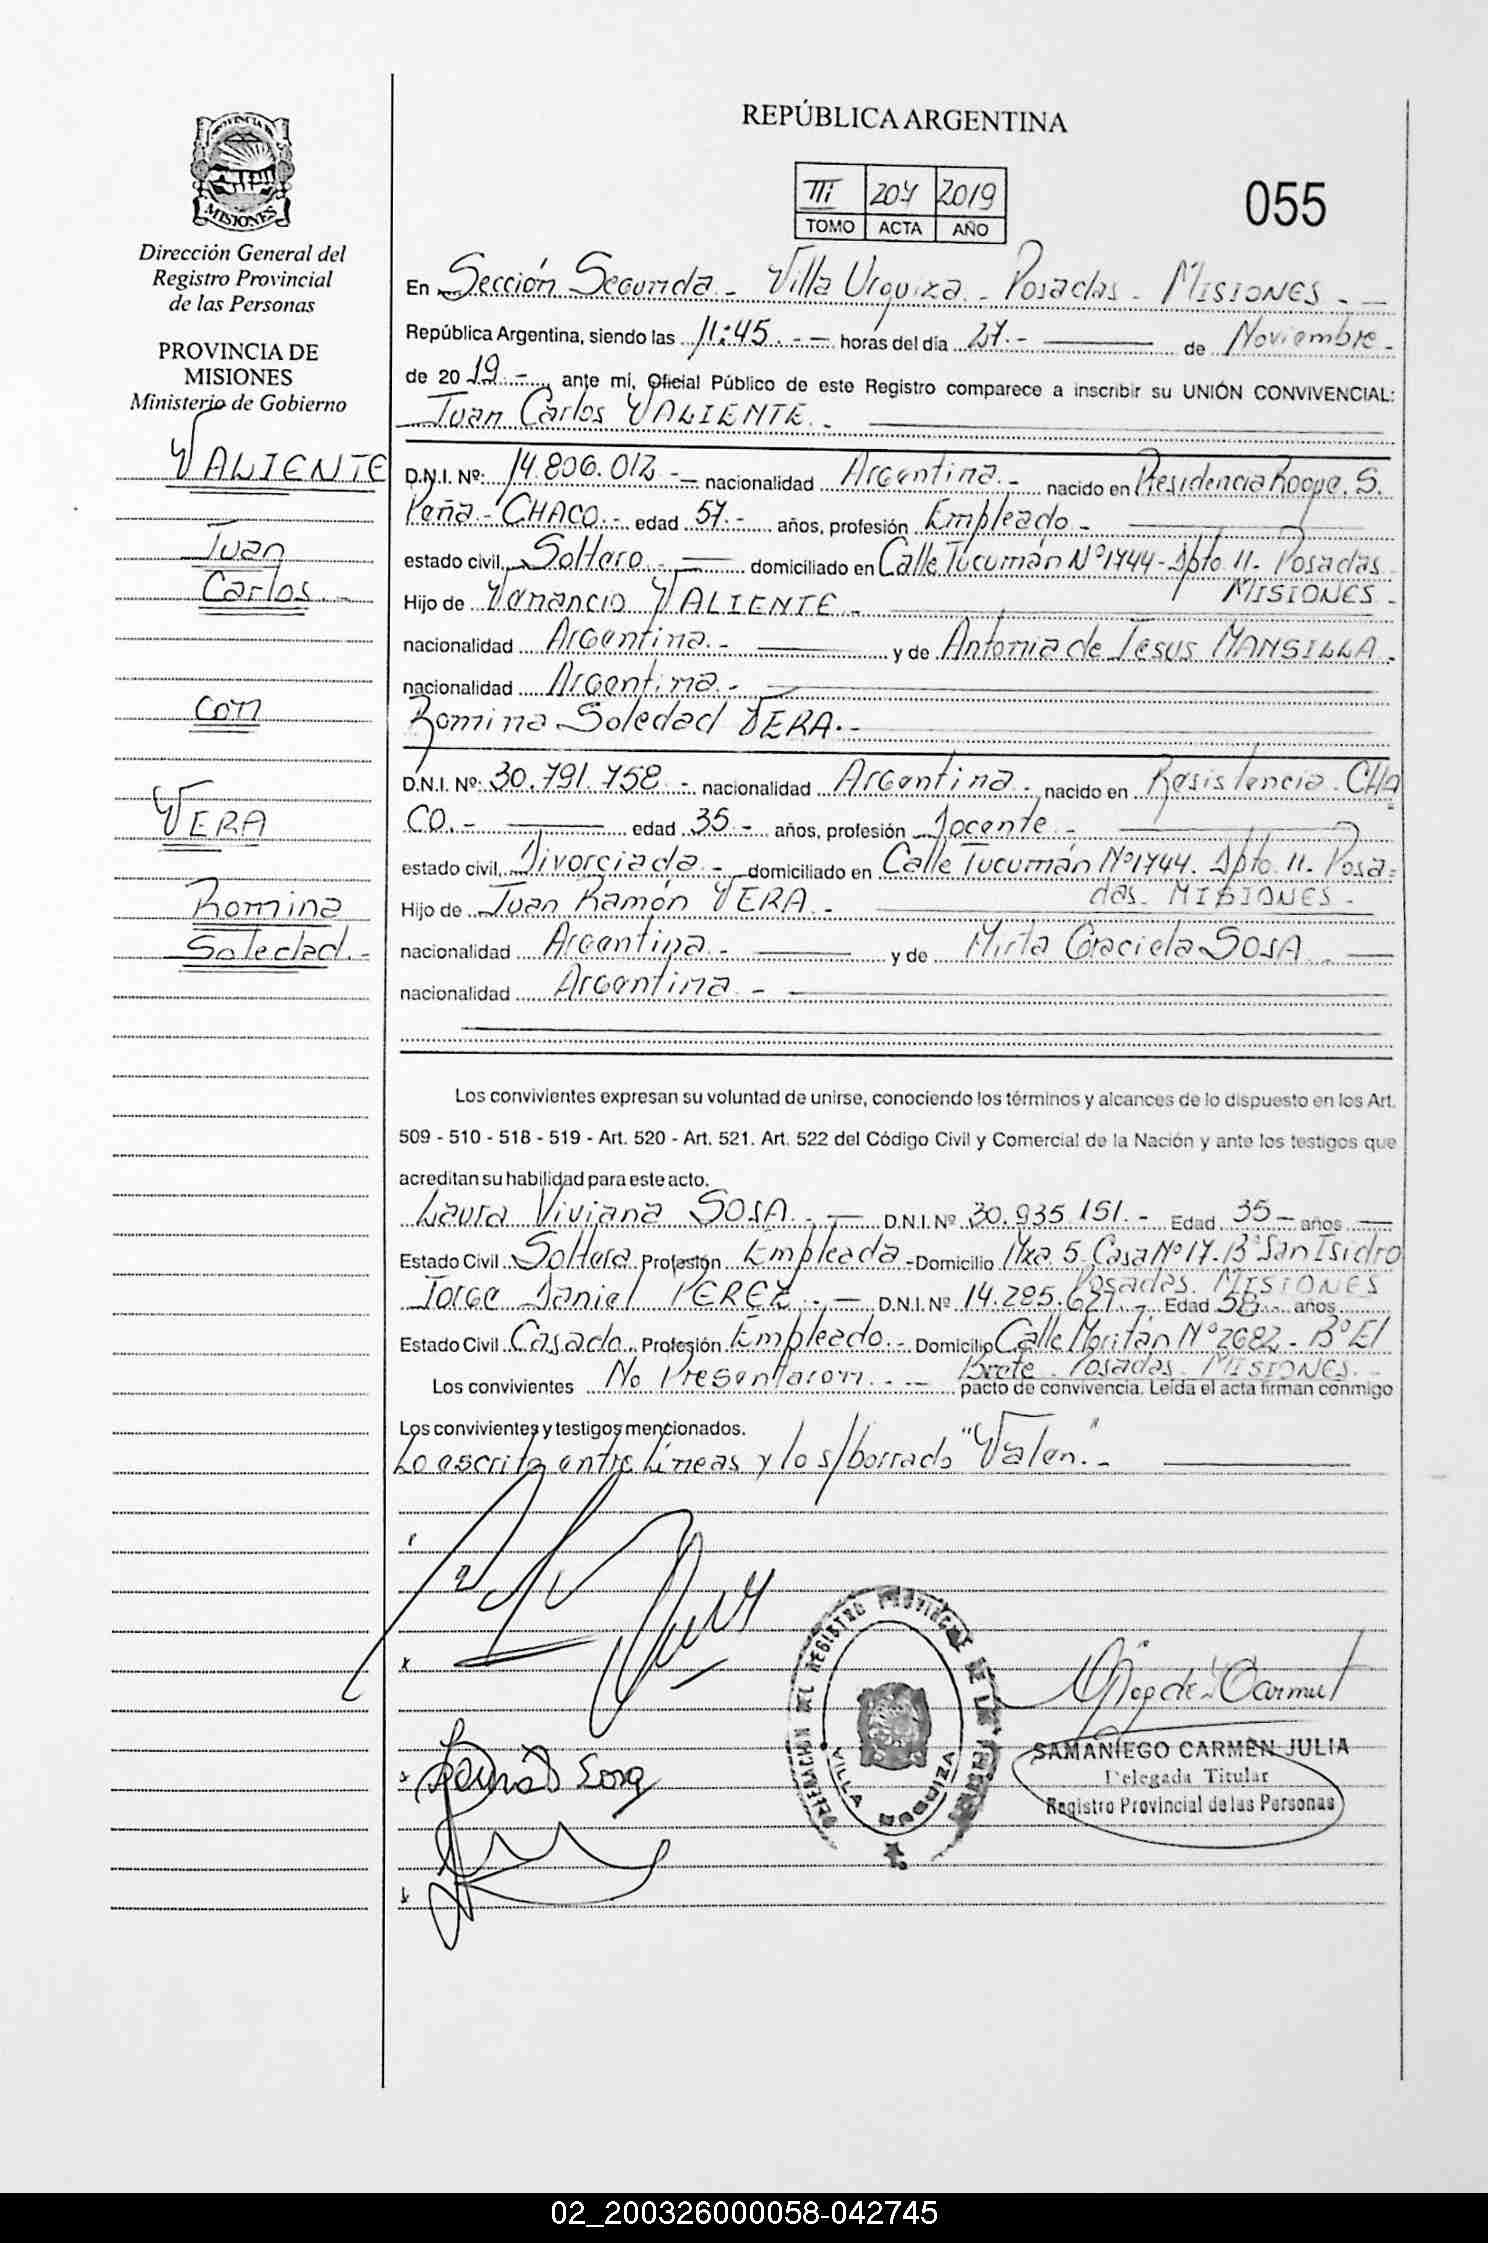 REPÚBLICA ARGENTINA
III 207 2019
TOMO ACTA AÑO
055
PROVINCIA DE
MISIONES
Dirección General del
Registro Provincial
de las Personas
PROVINCIA DE
MISIONES
Ministerio de Gobierno
VALIENTE
Juan
Carlos.-
con
VERA
Romina
Soledad.-
En Sección Segunda - Villa Urquiza - Posadas - MISIONES - -
República Argentina, siendo las 11:45.- - horas del día 27.- de Noviembre -
de 2019.-, ante mí, Oficial Público de este Registro comparece a inscribir su UNIÓN CONVIVENCIAL:
Juan Carlos VALIENTE.-
D.N.I. Nº: 14.806.012 - nacionalidad Argentina.- nacido en Presidencia Roque. S.
Peña - CHACO.- edad 57.- años, profesión Empleado -
estado civil, Soltero.- domiciliado en Calle Tucumán Nº1744 - Dpto 11. Posadas
MISIONES.
Hijo de Venancio VALIENTE -
nacionalidad Argentina.- y de Antonia de Jesus MANSILLA -
nacionalidad Argentina.-
Romina Soledad VERA.-
D.N.I. Nº: 30.791.758.- nacionalidad Argentina.- nacido en Resistencia - CHA
CO.- edad 35.- años, profesión Docente.-
estado civil, Divorciada.- domiciliado en Calle Tucumán Nº1744. Dpto. 11. Posa=
das. MISIONES -
Hijo de Juan Ramón VERA.-
nacionalidad Argentina.- y de Mirta Graciela SOSA -
nacionalidad Argentina -
Los convivientes expresan su voluntad de unirse, conociendo los términos y alcances de lo dispuesto en los Art.
509 - 510 - 518 - 519 - Art. 520 - Art. 521. Art. 522 del Código Civil y Comercial de la Nación y ante los testigos que
acreditan su habilidad para este acto.
Laura Viviana SOSA.- D.N.I. Nº 30.935.151.- Edad 35 - años
Estado Civil Soltera Profesión Empleada - Domicilio Mza 5. Casa Nº17. Bº San Isidro
Posadas. MISIONES
Jorge Daniel PEREZ.- D.N.I. Nº 14.285.627.- Edad 58 años
Estado Civil Casado. Profesión Empleado.- Domicilio Calle Moritán Nº 2682 - Bº El
Brete. Posadas. MISIONES.-
Los convivientes No Presentaron.- - pacto de convivencia. Leída el acta firman conmigo
Los convivientes y testigos mencionados.
Lo escrito entre líneas y lo s/borrado "Valen".-
DELEGACION DEL REGISTRO PROVINCIAL DE LAS PERSONAS
VILLA URQUIZA
SAMANIEGO CARMEN JULIA
Delegada Titular
Registro Provincial de las Personas
02_200326000058-042745